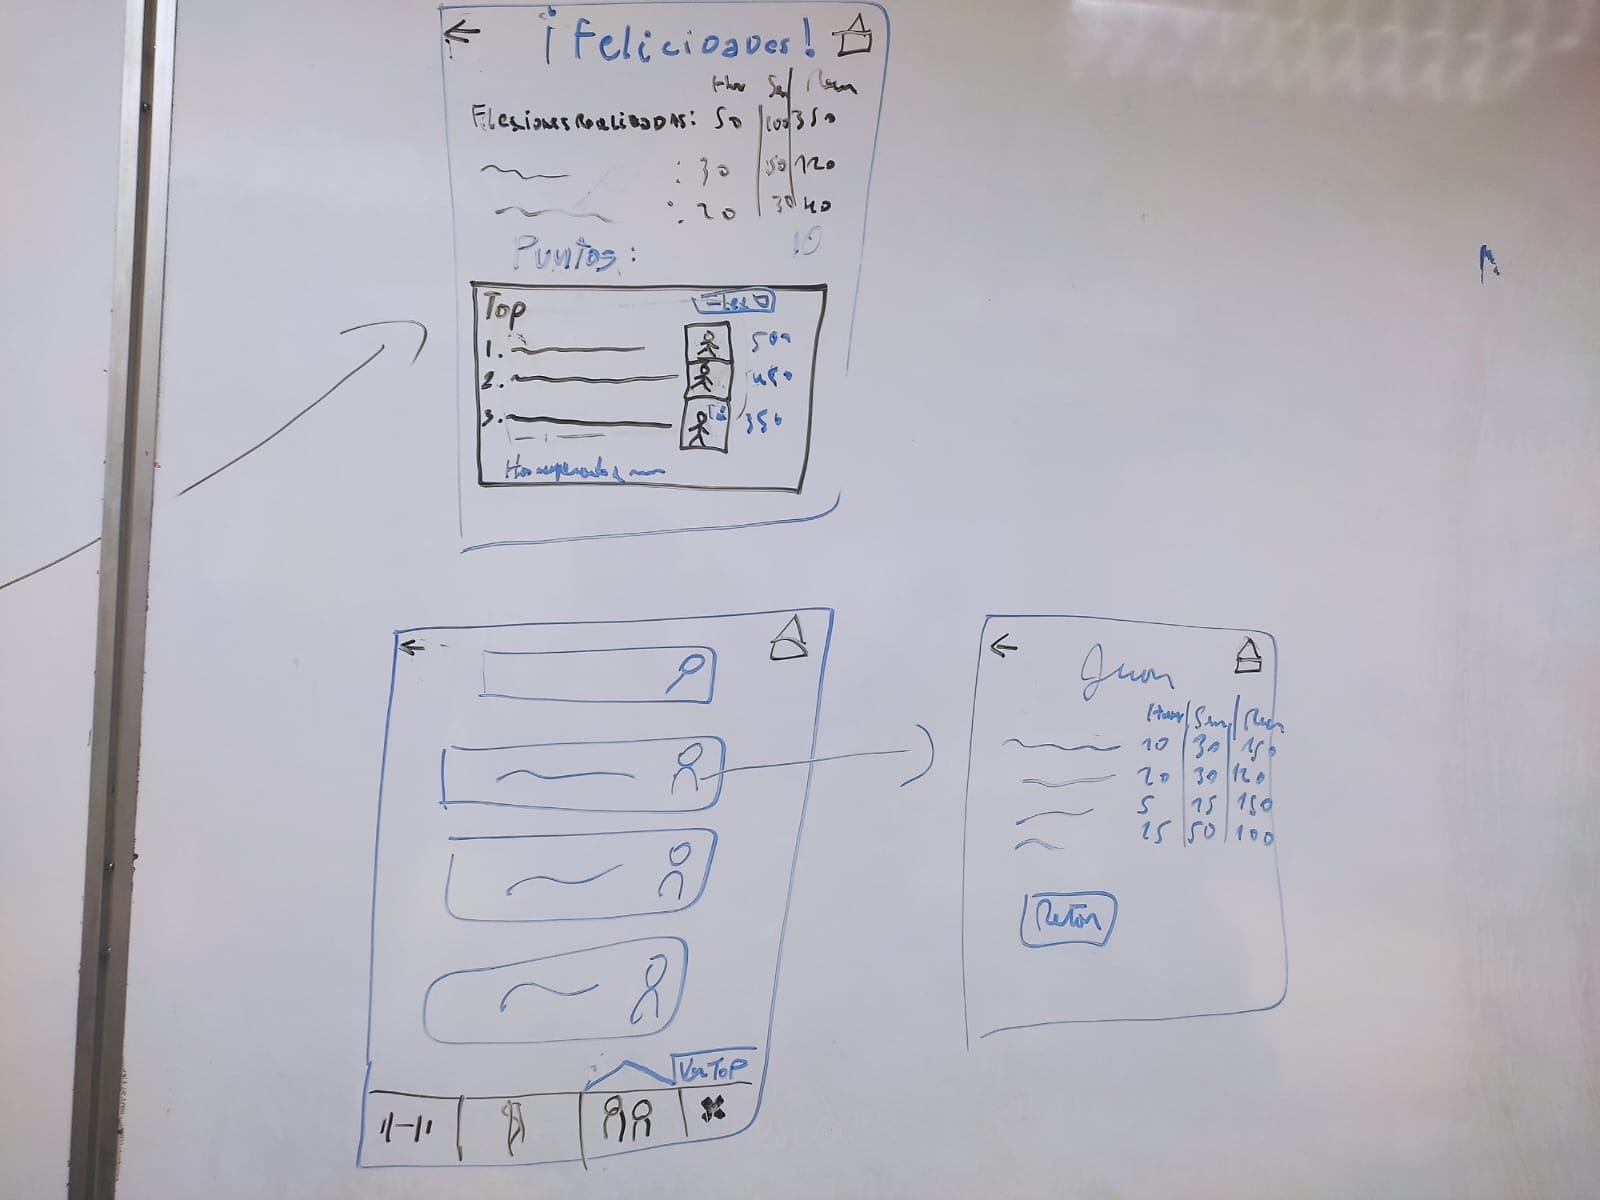 ¡Felicidades!
Hoy Sem Mes
Flexiones realizadas: 50 100 350
: 30 50 120
: 20 30 40
Puntos: 10
Top Flex
1. 500
2. 450
3. Tú 350
Has superado a
Ver Top
Juan
Hoy Sem
10 30 150
20 30 120
5 15 150
15 50 100
Retar